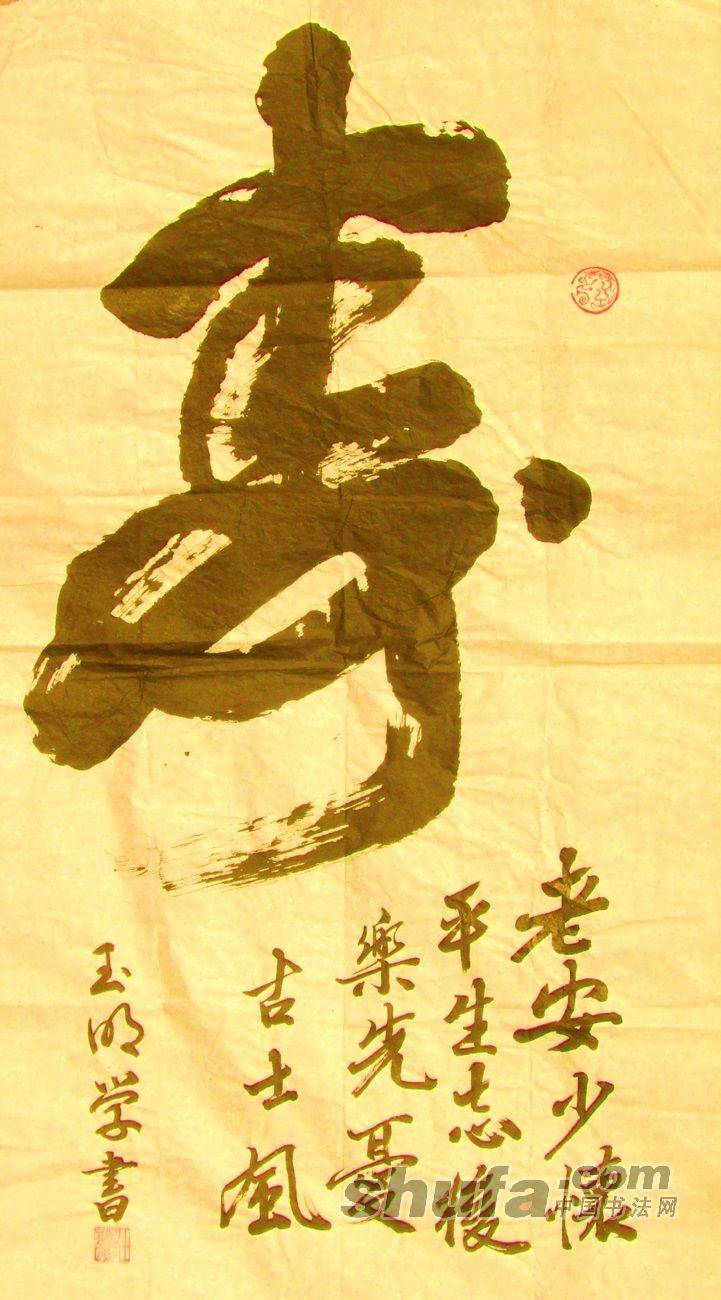 寿
老安少懷
平生志後
樂先憂
古士風
玉明学書
shufa.com
中国书法网